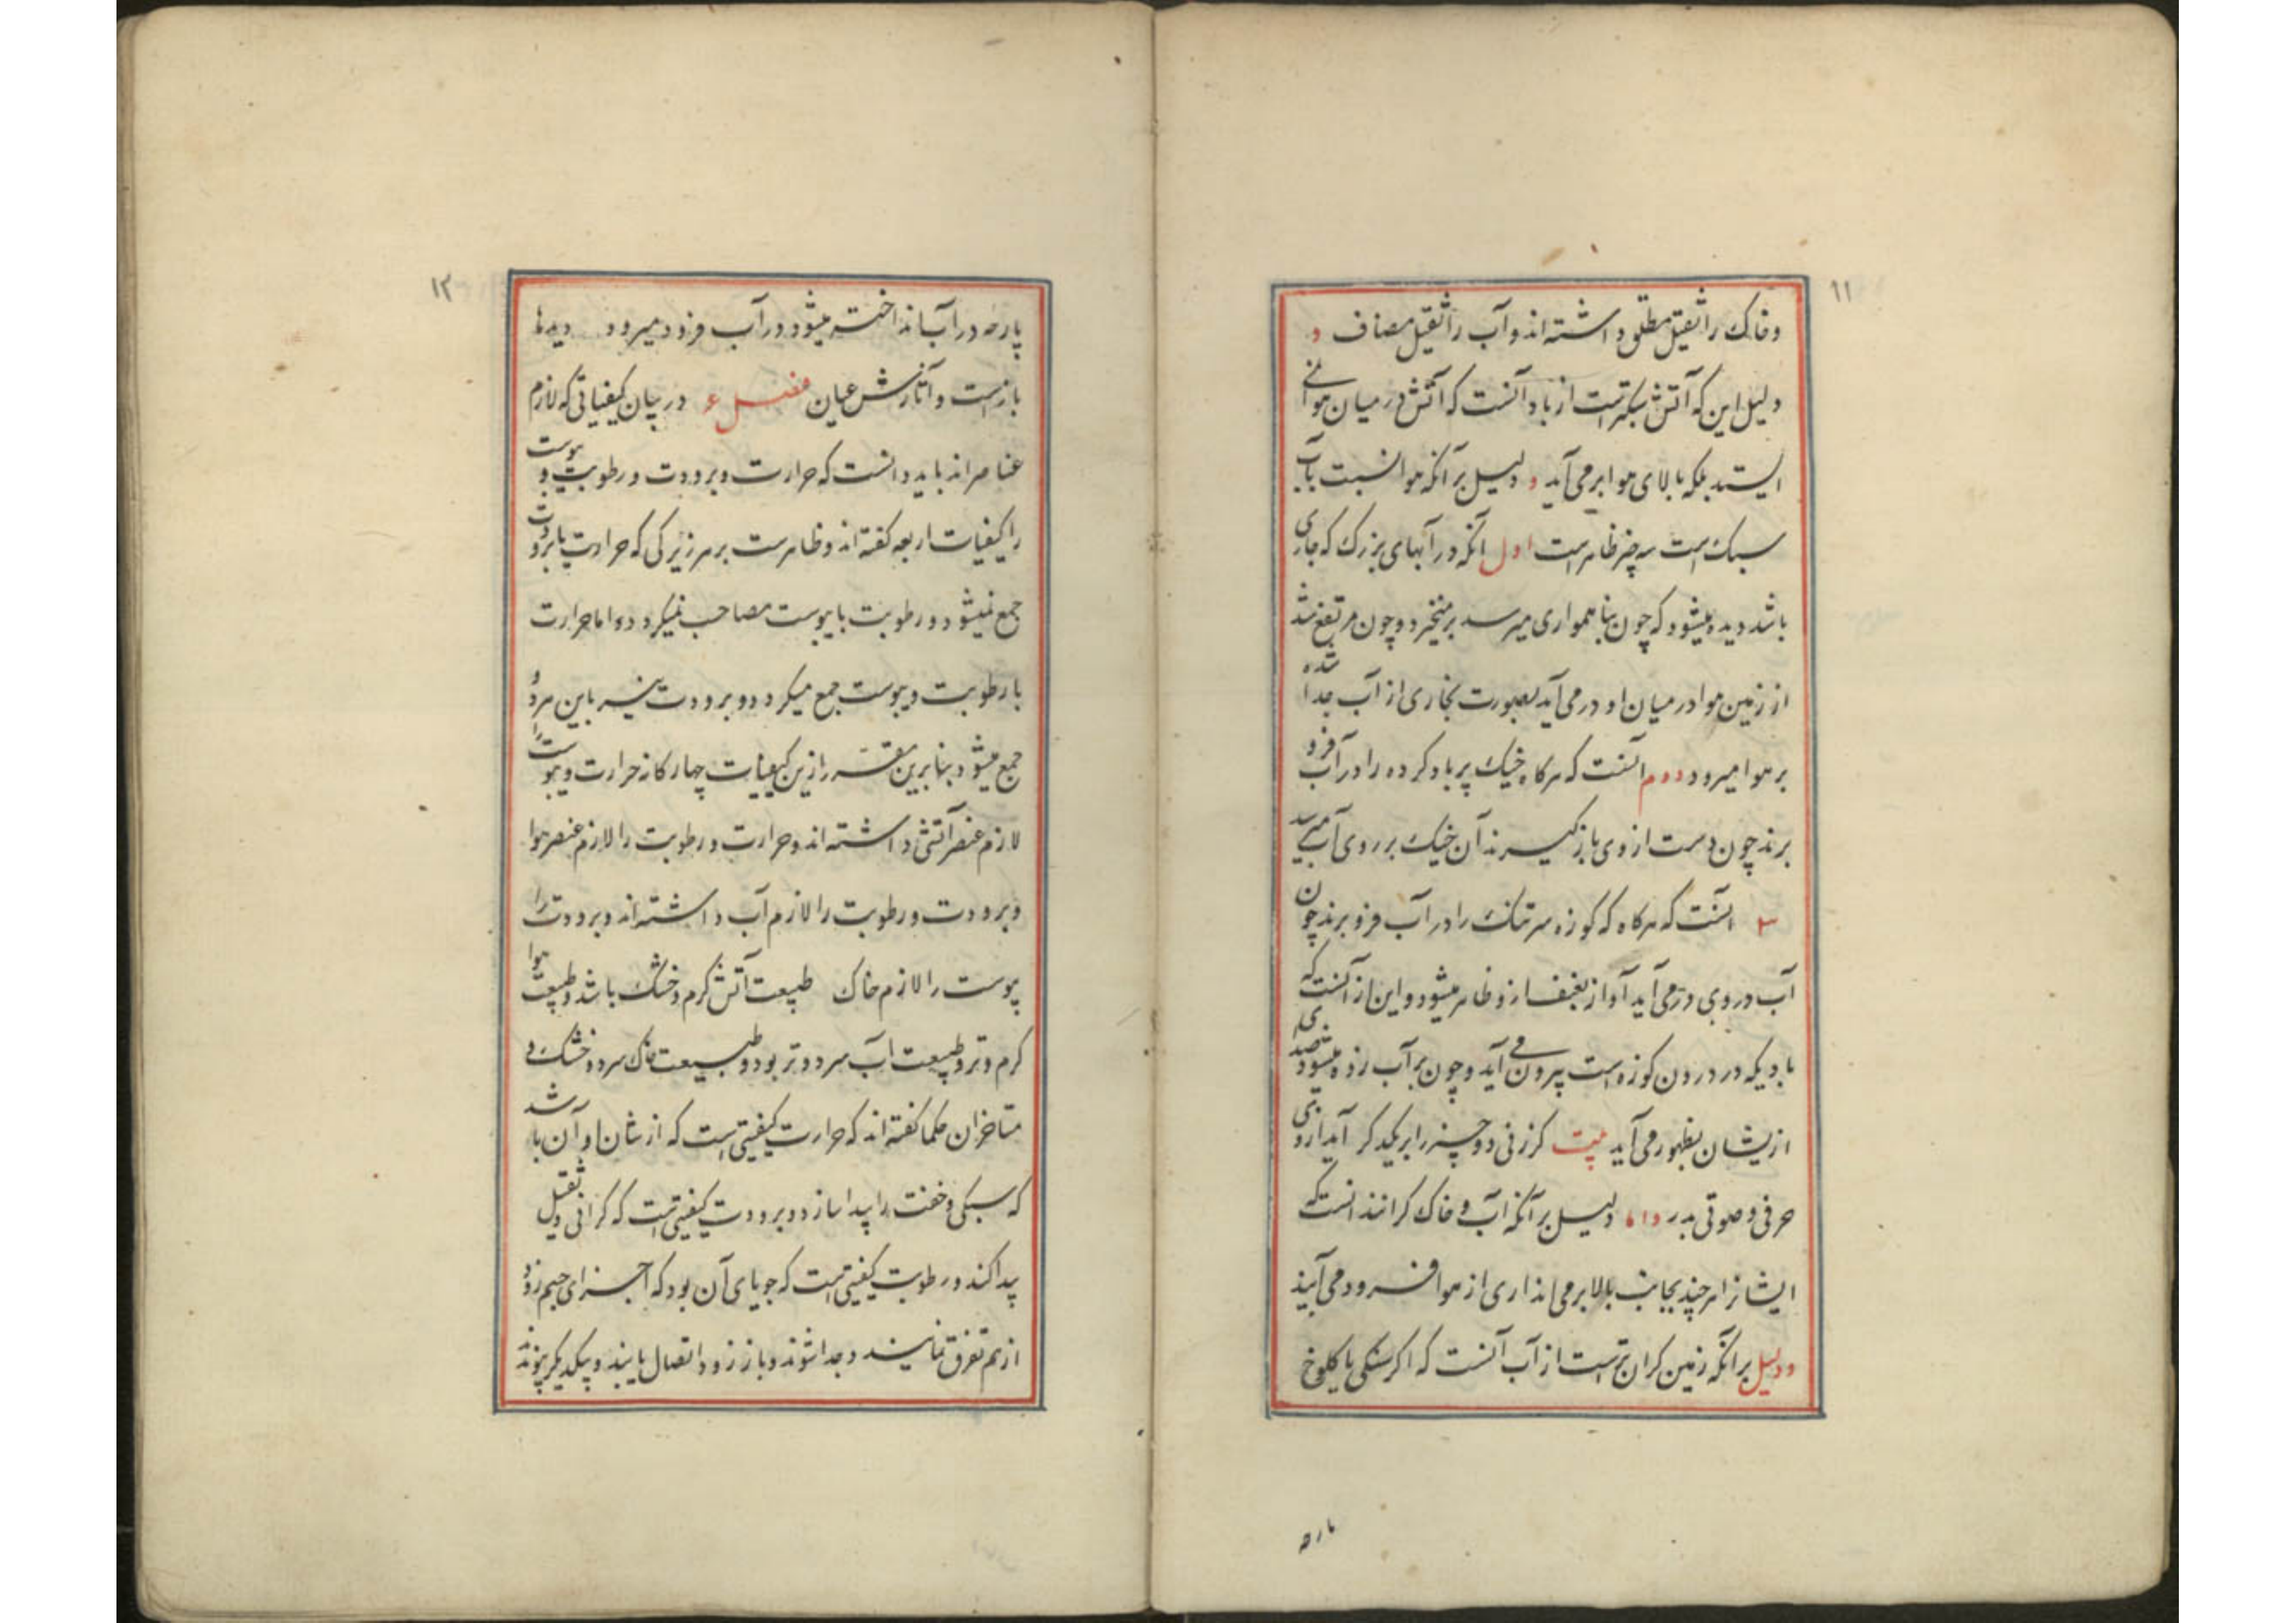 ۱۱
وخاک را ثقیل مطلق داشته اند وآب را ثقیل مضاف و
دلیل این که آتش سبکتر است از باد آنست که آتش در میان هوا نمی
ایستد بلکه بالای هوا بر می آید و دلیل بر آنکه هوا نسبت بآب
سبک است سه چیز ظاهر است اول آنکه در آبهای بزرگ که جاری
باشد دیده میشود که چون بنا همواری میرسد بر میخیزد وچون مرتفع شد
از زمین هوا در میان او در می آید بصورت بخاری از آب جدا شده
بر هوا میرود دوم آنست که هرکاه خیک پر باد کرده را در آب فرو
برند چون دست از وی باز گیرند آن خیک بر روی آب می آید
۳ آنست که هرکاه که کوزه سرتنک را در آب فرو برند چون
آب در وی در می آید آواز بغبغه ازو ظاهر میشود واین از آنست که
بادیکه در درون کوزه است بیرون می آید وچون بر آب زده میشود صدی
ازیشان بظهور می آید بیت کر زنی دو چیز را بر یکدکر آید از وی
حرفی وصوتی بدر واما دلیل بر آنکه آب وخاک کرانند آنست که
ایشانرا هر چند بجانب بالا بر می اندازی از هوا فرود می آیند
ودلیل بر آنکه زمین کران تر است از آب آنست که اکر سنکی یا کلوخ
پاره
۱۲
پاره در آب انداخته میشود در آب فرود میرود دیدها
باز است وآثارش عیان فصل ۴ در بیان کیفیاتی که لازم
عناصر اند باید دانست که حرارت وبرودت ورطوبت ویبوست
را کیفیات اربعه کفته اند وظاهر است بر هر زیرکی که حرارت با برودت
جمع نمیشود ورطوبت با یبوست مصاحب نمیکردد واما حرارت
با رطوبت ویبوست جمع میکردد وبرودت نیز باین هر دو
جمع میشود بنابرین مقرر ازین کیفیات چهارکانه حرارت ویبوست را
لازم عنصر آتش داشته اند وحرارت ورطوبت را لازم عنصر هوا
وبرودت ورطوبت را لازم آب داشته اند وبرودت را
یبوست را لازم خاک طبیعت آتش کرم وخشک باشد وطبیعت هوا
کرم وتر وطبیعت آب سرد وتر بود وطبیعت خاک سرد وخشک و
متاخران حکما کفته اند که حرارت کیفیتی است که از شان او آن باشد
که سبکی وخفت را پیدا سازد وبرودت کیفیتی است که کرانی وثقل
پیدا کند ورطوبت کیفیتی است که جویای آن بود که اجزای جسم زود
از هم تفرق نمایند وجدا شوند وباز زود اتصال یابند وبیکدیکر پیوندند